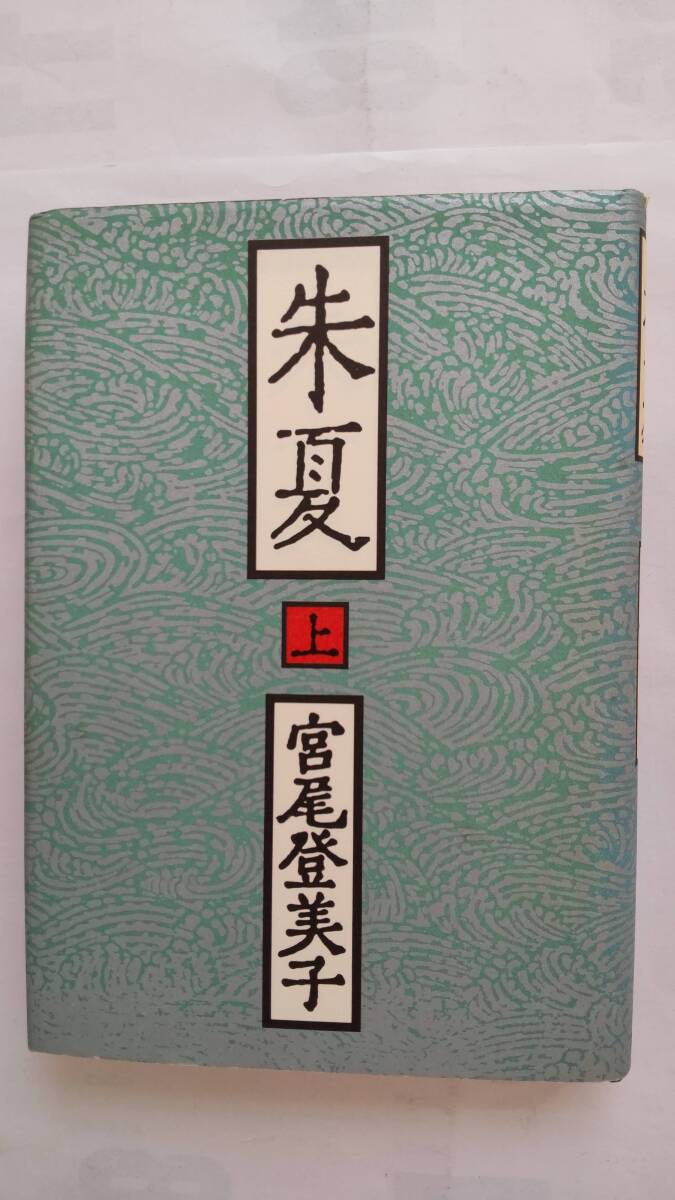 朱夏
上
宮尾登美子